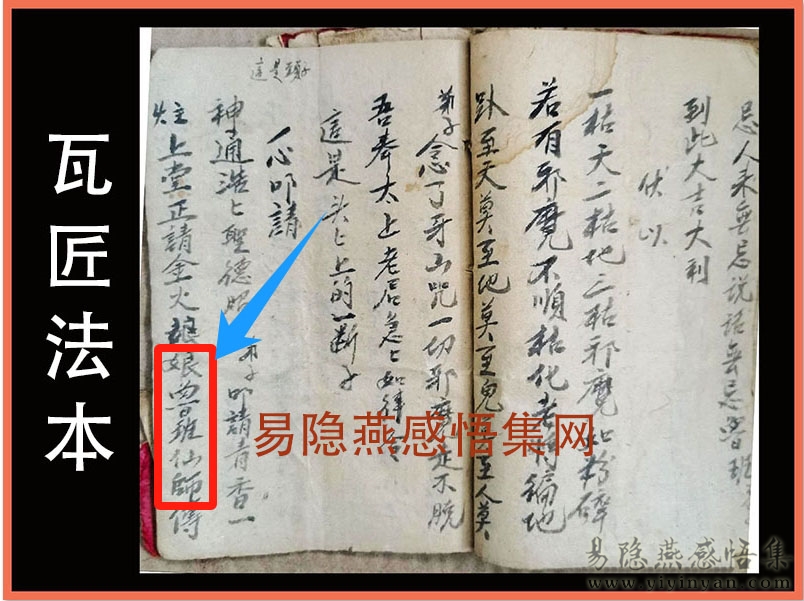 瓦匠法本
忌人未無忌说话無忌魯班
到此大吉大利
伏以
一枯天二枯地三枯邪魔如粉碎
若有邪魔不順枯化老
卧至天莫至地莫至鬼莫至人莫
弟子念了牙山咒一切邪魔走不脱
吾奉太上老君急〻如律令
這是头〻上的一断子
一心叩請
這是頭子
神通浩〻聖德昭 弟子叩請青香一
主
火 上堂正請金火娘娘魯班仙師傅
易隐燕感悟集网
易隐燕感悟集
www.yiyinyan.com